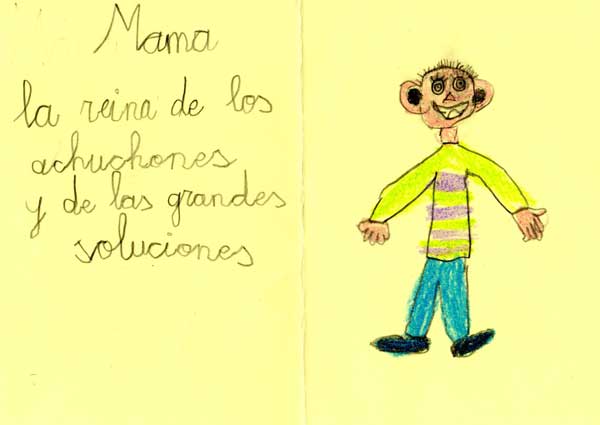 Mama
la reina de los
achuchones
y de las grandes
soluciones